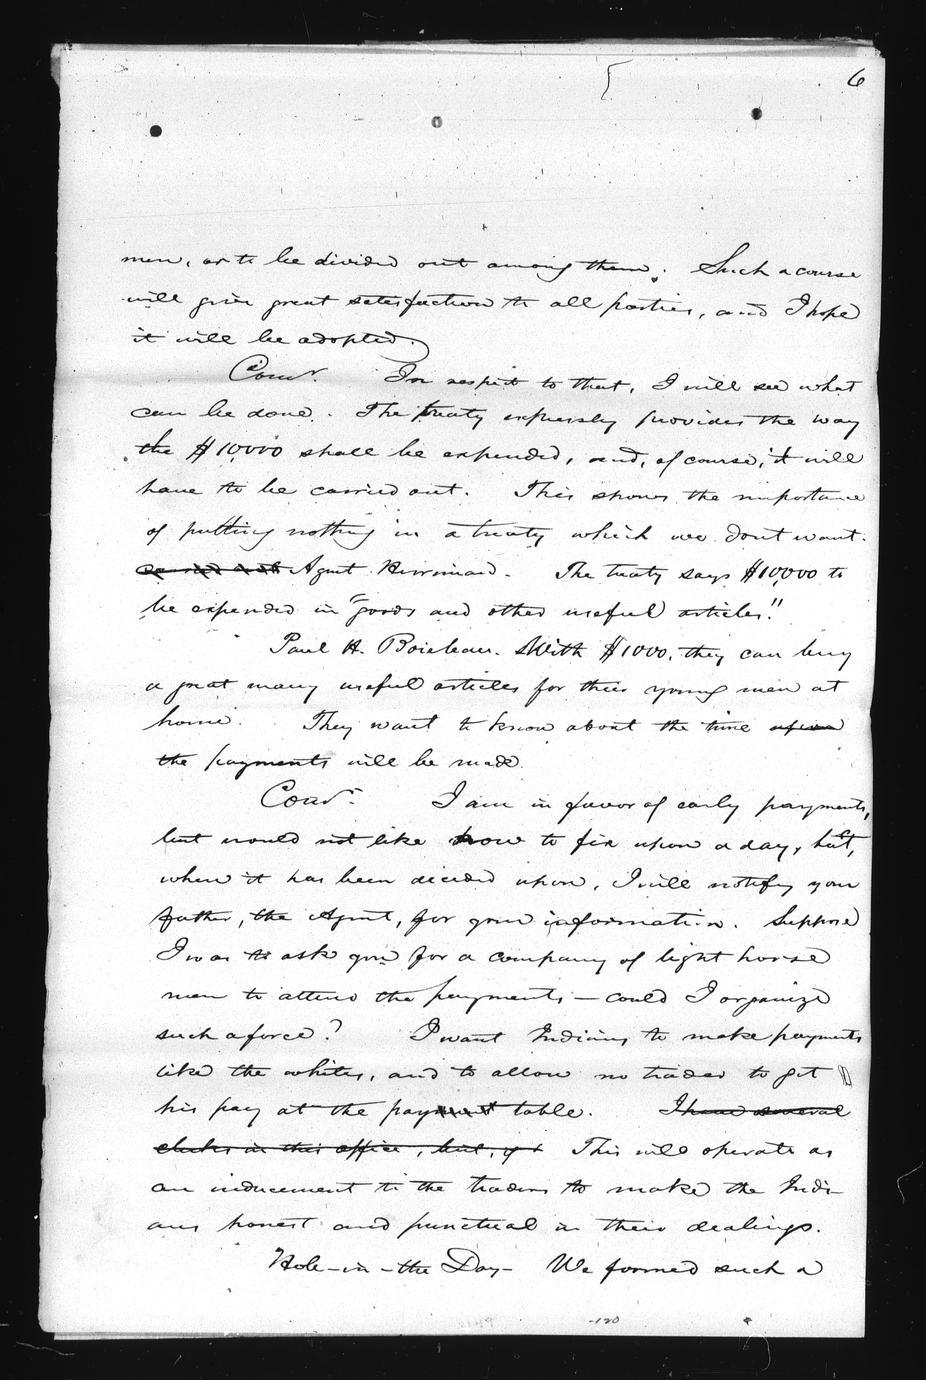 6
men, or to be divided out among them. Such a course
will give great satisfaction to all parties, and I hope
it will be adopted.
Comr. In respect to that, I will see what
can be done. The treaty expressly provides the way
the $10,000 shall be expended, and, of course, it will
have to be carried out. This shows the importance
of putting nothing in a treaty which we don't want.
carried out Agent Herriman. The treaty says $10,000 to
be expended in "goods and other useful articles."
Paul H. Boileau. With $1000, they can buy
a great many useful articles for their young men at
home. They want to know about the time upon
the payments will be made.
Comr. I am in favor of early payments,
but would not like now to fix upon a day, but,
when it has been decided upon, I will notify your
father, the Agent, for your information. Suppose
I was to ask you for a company of light horse
men to attend the payments — could I organize
such a force? I want Indians to make payments
like the whites, and to allow no trader to get
his pay at the payment table. I have several
clerks in this office, but, if I This will operate as
an inducement to the traders to make the Indi-
ans honest and punctual in their dealings.
Hole-in-the Day- We formed such a